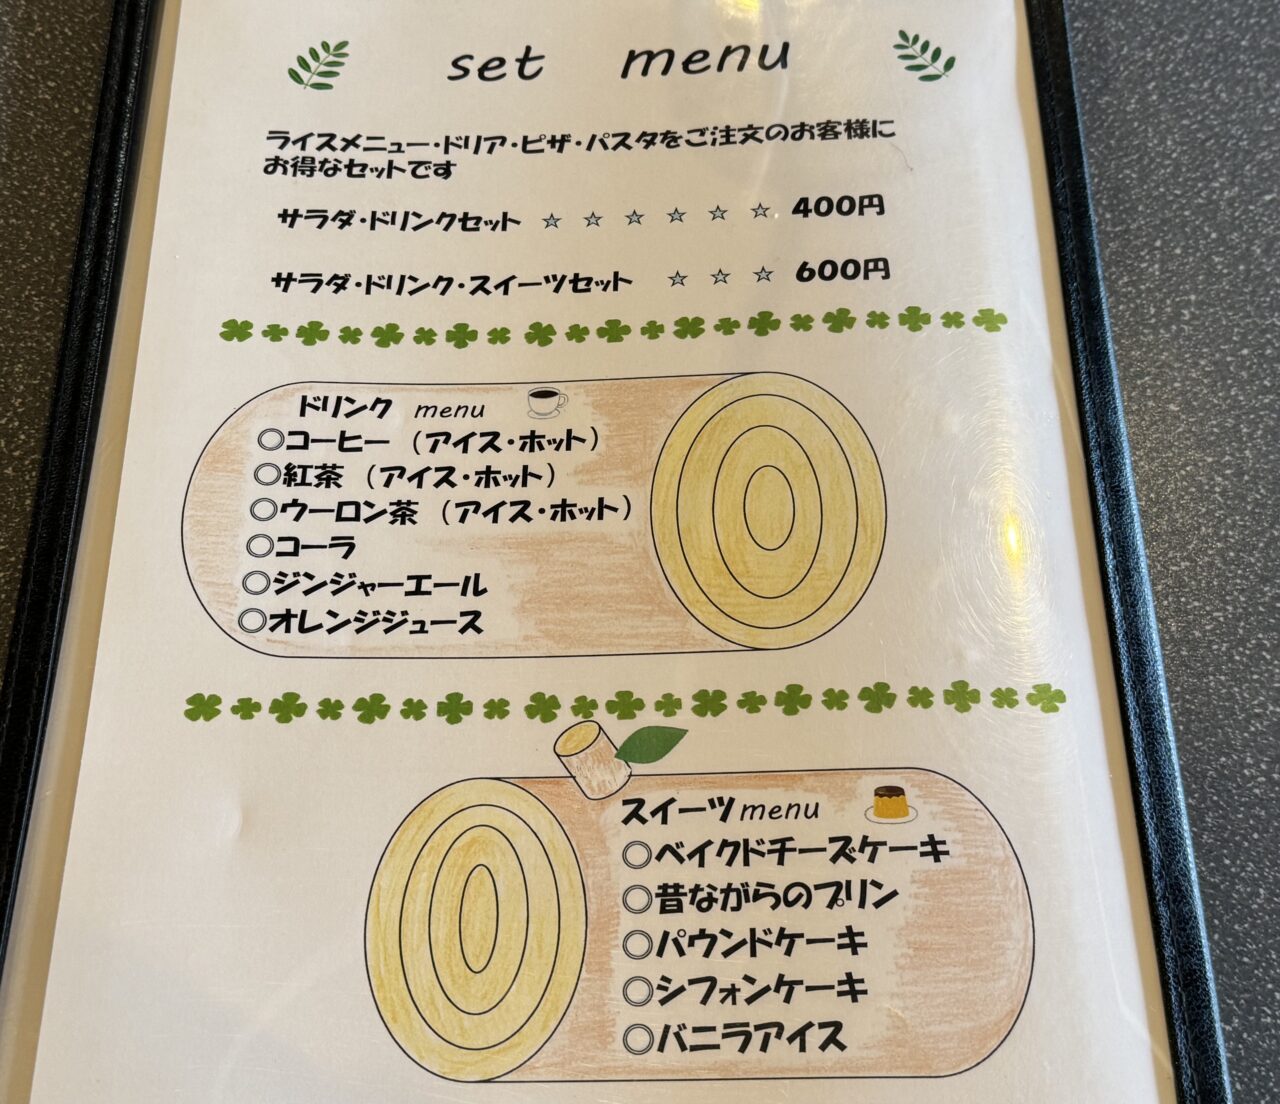 set menu
ライスメニュー・ドリア・ピザ・パスタをご注文のお客様に
お得なセットです
サラダ・ドリンクセット ☆ ☆ ☆ ☆ ☆ ☆ 400円
サラダ・ドリンク・スイーツセット ☆ ☆ ☆ 600円
ドリンク menu
◎コーヒー（アイス・ホット）
◎紅茶（アイス・ホット）
◎ウーロン茶（アイス・ホット）
◎コーラ
◎ジンジャーエール
◎オレンジジュース
スイーツmenu
◎ベイクドチーズケーキ
◎昔ながらのプリン
◎パウンドケーキ
◎シフォンケーキ
◎バニラアイス